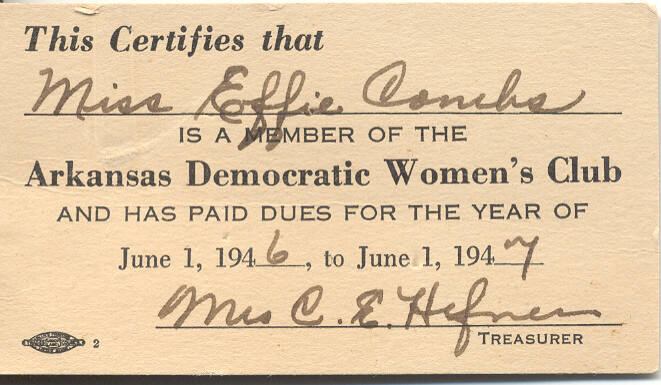 This Certifies that
Miss Effie Combs
IS A MEMBER OF THE
Arkansas Democratic Women's Club
AND HAS PAID DUES FOR THE YEAR OF
June 1, 1946, to June 1, 1947
Mrs C. E. Hefner
TREASURER
2